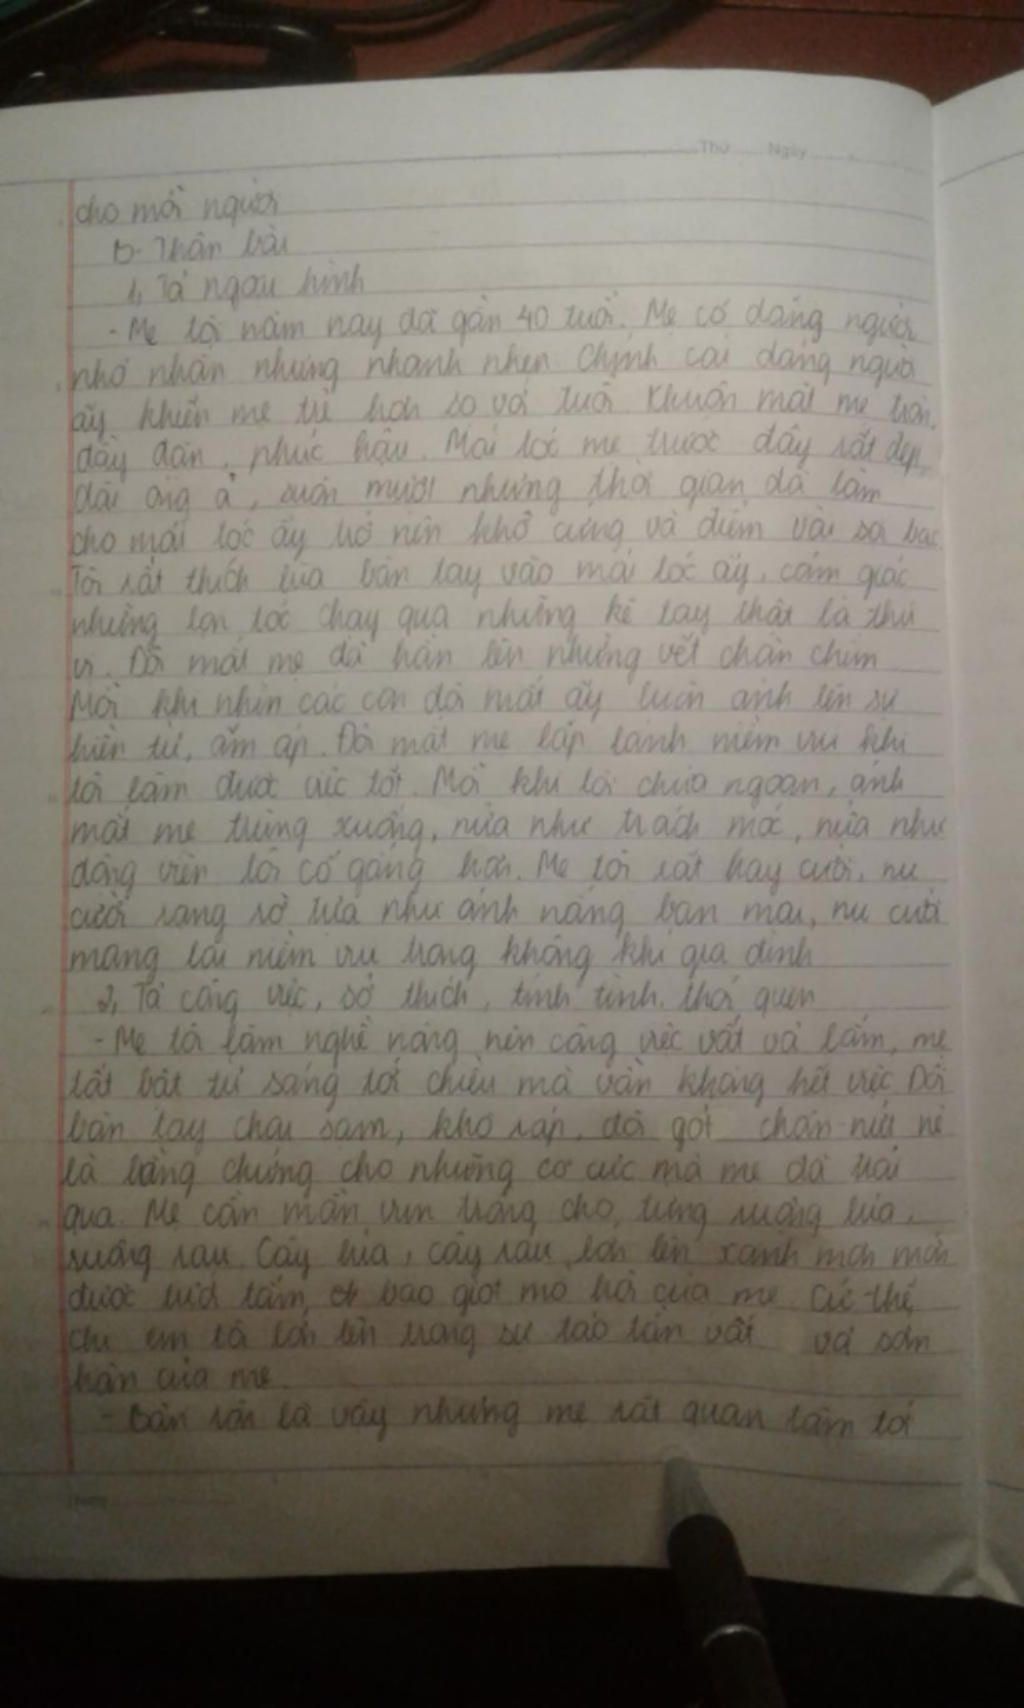 Thứ ...... Ngày ............
cho mọi người
b. Thân bài
1, Tả ngoại hình
- Mẹ tôi năm nay đã gần 40 tuổi. Mẹ có dáng người
nhỏ nhắn nhưng nhanh nhẹn. Chính cái dáng người
ấy khiến mẹ trẻ hơn so với tuổi. Khuôn mặt mẹ tròn,
đầy đặn, phúc hậu. Mái tóc mẹ trước đây rất đẹp,
dài óng ả, suôn mượt nhưng thời gian đã làm
cho mái tóc ấy trở nên khô cứng và điểm vài sợi bạc.
Tôi rất thích lùa bàn tay vào mái tóc ấy, cảm giác
những lọn tóc chạy qua những kẽ tay thật là thú
vị. Đôi mắt mẹ đã hằn lên những vết chân chim
Mỗi khi nhìn các con đôi mắt ấy luôn ánh lên sự
hiền từ, ấm áp. Đôi mắt mẹ lấp lánh niềm vui khi
tôi làm được việc tốt. Mỗi khi tôi chưa ngoan, ánh
mắt mẹ trùng xuống, nửa như trách móc, nửa như
động viên tôi cố gắng hơn. Mẹ tôi rất hay cười, nụ
cười rạng rỡ tựa như ánh nắng ban mai, nụ cười
mang lại niềm vui trong không khí gia đình
2, Tả công việc, sở thích, tính tình, thói quen
- Mẹ tôi làm nghề nông nên công việc vất vả lắm, mẹ
tất bật từ sáng tới chiều mà vẫn không hết việc. Đôi
bàn tay chai sạm, khô ráp, đôi gót chân nứt nẻ
là bằng chứng cho những cơ cực mà mẹ đã trải
qua. Mẹ cần mẫn vun trồng cho từng ruộng lúa,
ruộng rau. Cây lúa, cây rau lớn lên xanh mơn mởn
được tưới tắm bao giọt mồ hôi của mẹ. Cứ thế,
chị em tôi lớn lên trong sự tảo tần vất vả sớm
hôm của mẹ.
- Bận rộn là vậy nhưng mẹ rất quan tâm tới